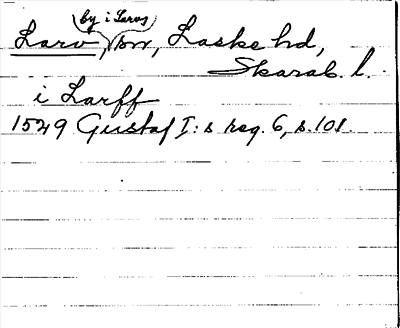 by i Larvs
Larv, sn, Laske hd,
Skarab. l.
i Larff
1529 Gustaf I:s reg. 6, s. 101.